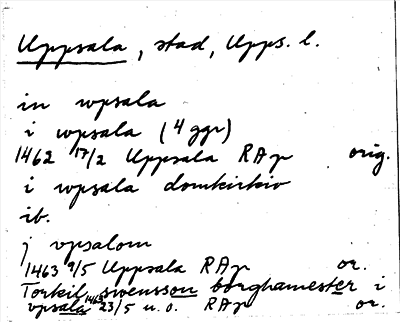 Uppsala, stad, Upps. l.
in wpsala
i wpsala (4 ggr)
1462 17/2 Uppsala RAp orig.
i wpsala domkirkio
ib.
j vpsalom
1463 9/5 Uppsala RAp or.
Torkil swensson borghamester i
vpsala 1463 23/5 u.o. RAp or.